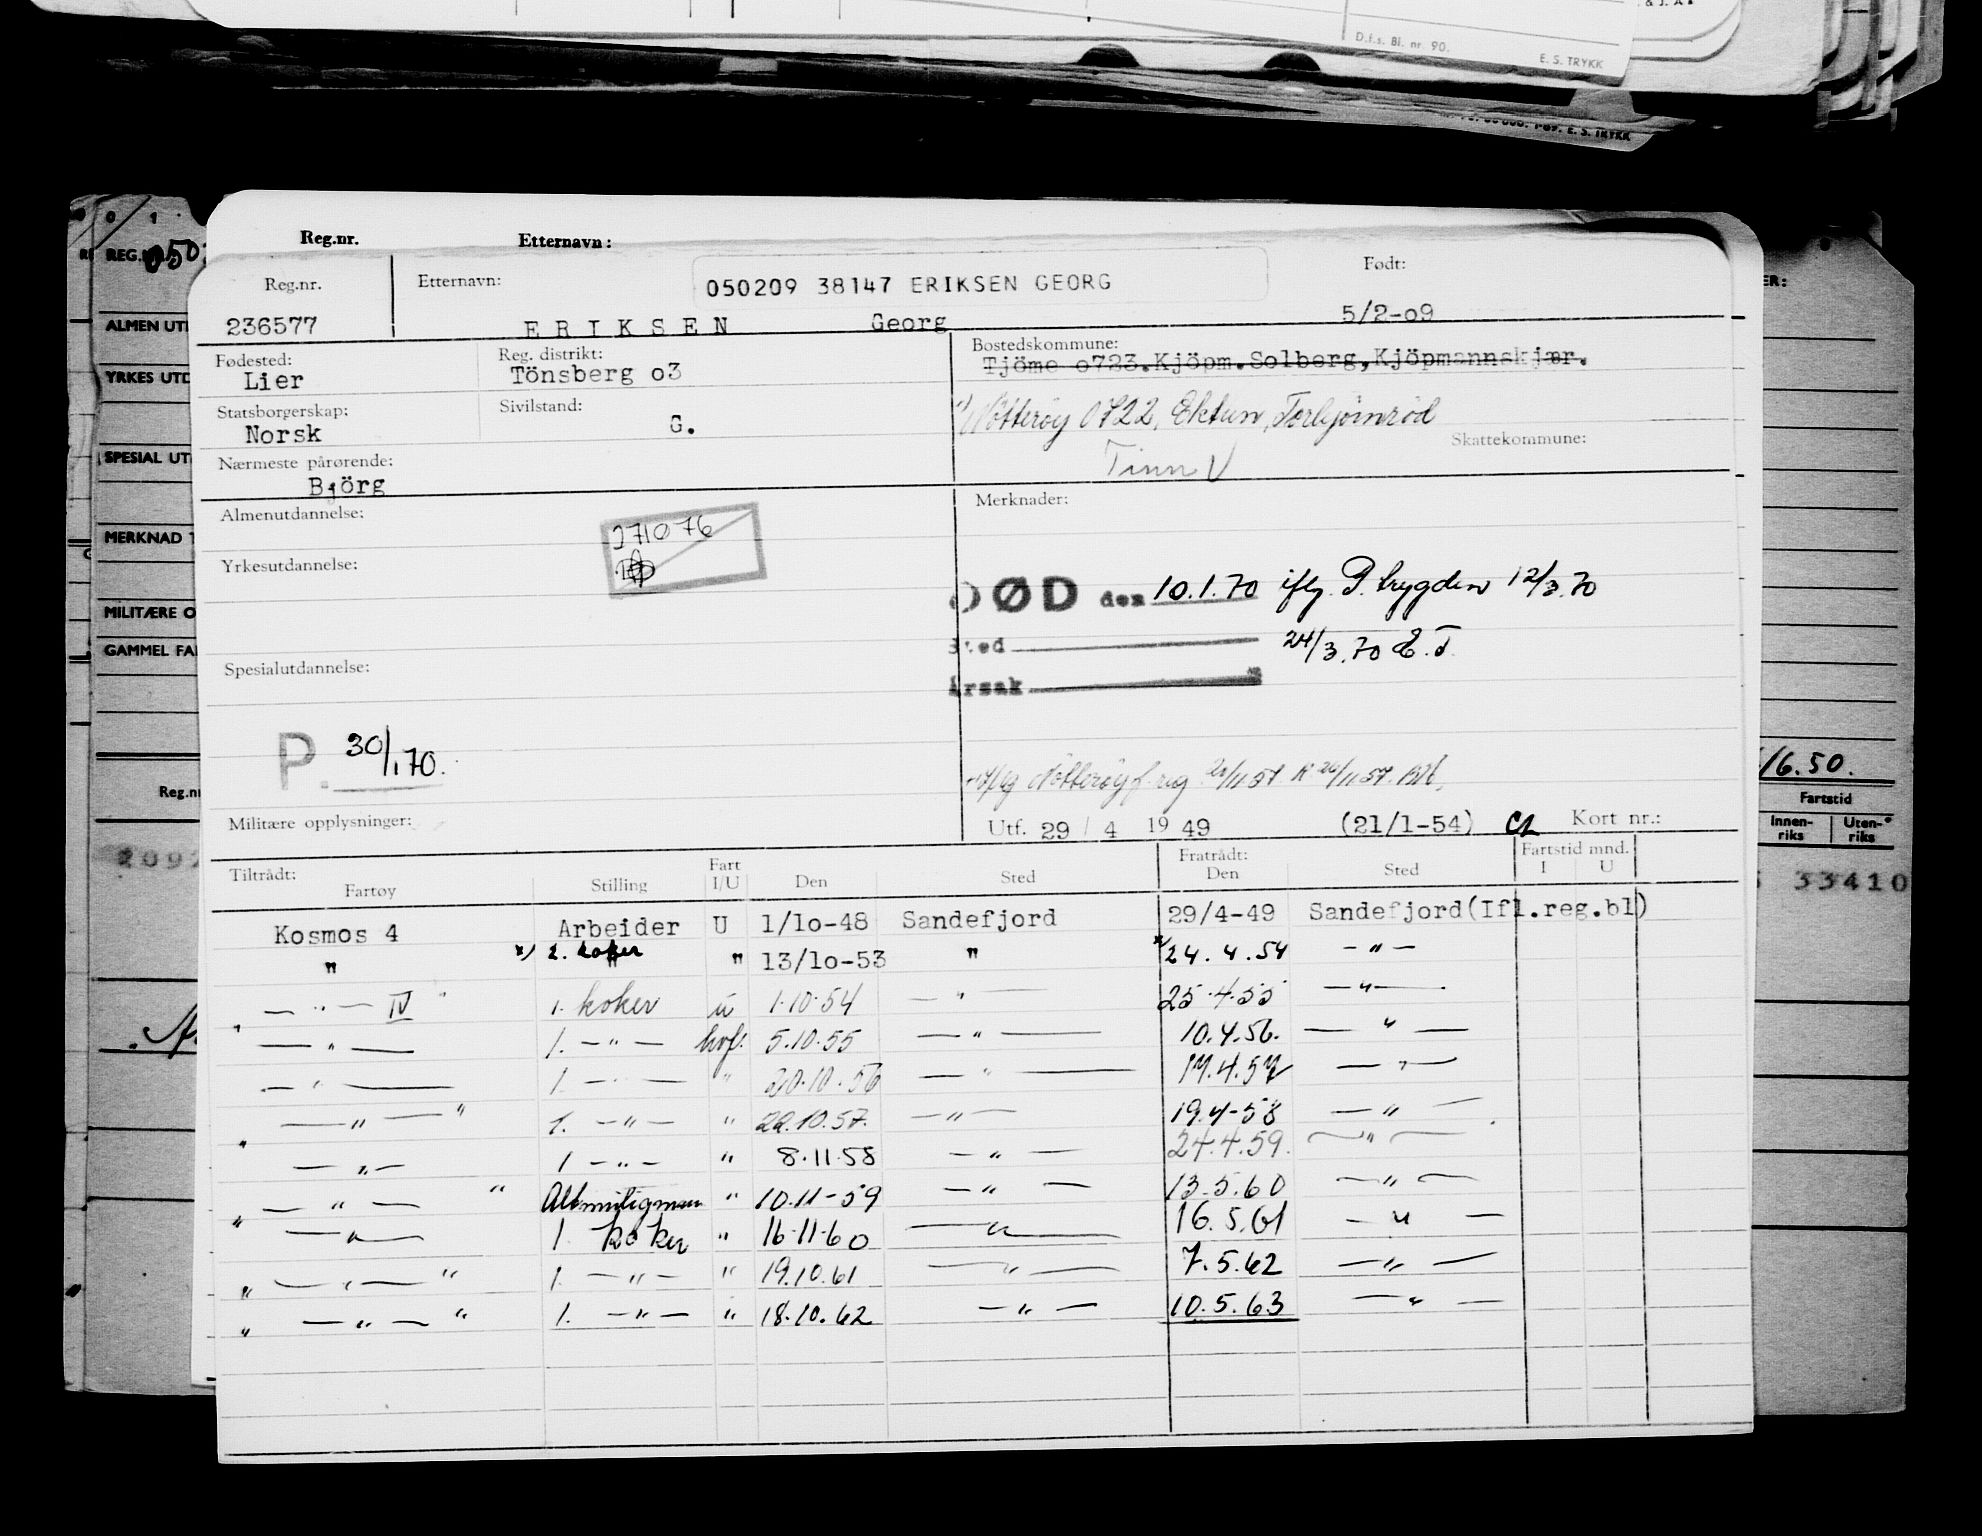 & J. A.
D.f.s. Bl. nr. 90.
E. S. TRYKK
E. S. TRYKK
Reg.nr. Etternavn:
0 1
REG. 050
ER:
Reg.nr. Etternavn: 050209 38147 ERIKSEN GEORG Født:
236577 E R I K S E N Georg 5/2-o9
ALMEN UT
Fødested: Reg. distrikt: Bostedskommune:
Lier Tönsberg o3 Tjöme o723.Kjöpm.Solberg,Kjöpmannskjær.
YRKES UTD
Statsborgerskap: Sivilstand:
Norsk G. Nötteröy 0722, Ektun, Torbjörnröd
Skattekommune:
SPESIAL UT
Nærmeste pårørende: Tinn V
Björg
Almenutdannelse: Merknader:
271076
MERKNAD
Yrkesutdannelse:
DØD den 10.1.70 ifly. P. trygden 12/3.70
MILITÆRE O
Sted 24/3.70 E.T.
GAMMEL FA
Spesialutdannelse: Årsak
P. 30/1.70.
/6.50.
Reg.n
Fartstid
Innenriks Utenriks
Militære opplysninger: Utf. 29 / 4 19 49 (21/1-54) Kort nr.:
2092
33410
Tiltrådt: Fratrådt: Fartstid mnd.
Fartøy Stilling Fart I/U Den Sted Den Sted I U
Kosmos 4 Arbeider U 1/1o-48 Sandefjord 29/4-49 Sandefjord(Ifl.reg.bl)
" x) 2. koker " " 13/1o-53 " x 24.4.54 — " —
— " — IV " 1. koker u 1.10.54 — " — 25.4.55 — " —
" — " — 1. — " — hvf. 5.10.55 — " — 10.4.56. — " —
— " — 1. — " — " 20.10.56 — " — 17.4.57 — " —
— " — " 1. — " — " 22.10.57. — " — 19.4-58 — " —
" — " — 1 — " — " 8.11.58 — " — 24.4.59. — " —
— " — " Altmuligman " 10.11-59 — " — 13.5.60 — " —
" — " — 1. koker " 16.11.60 — " — 16.5.61 — " —
" — " — " 1. — " — " 19.10.61 — " — 7.5.62 — " —
" — " — " 1. — " — " 18.10.62 — " — 10.5.63 — " —